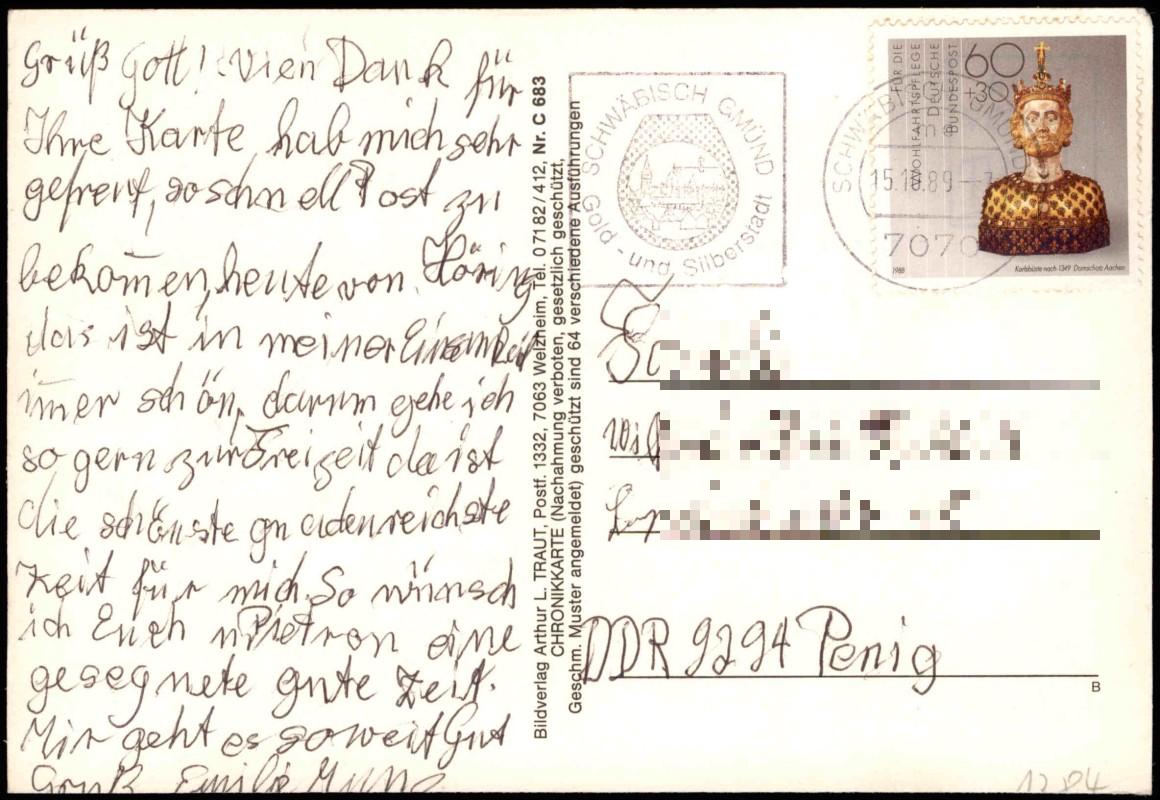 Grüß Gott! Vien Dank für
Ihre Karte hab mich sehr
gefreut, so schnell Post zu
bekom̄en, heute von Höring
das ist in meiner Einsamkeit
im̄er schön, darum gehe ich
so gern zur Freizeit da ist
die schönste gnadenreichste
Zeit für mich. So wünsch
ich Euch eine
gesegnete gute Zeit.
Mir geht es soweit Gut
Gruß Emilie
Bildverlag Arthur L. TRAUT, Postf. 1332, 7063 Welzheim, Tel. 07182/412, Nr. C 683
CHRONIKKARTE (Nachahmung verboten, gesetzlich geschützt,
Geschm. Muster angemeldet) geschützt sind 64 verschiedene Ausführungen
SCHWÄBISCH GMÜND
Gold - und Silberstadt
SCHWÄBISCH GMÜND
7070
60
+30
FÜR DIE
WOHLFAHRTSPFLEGE
DEUTSCHE
BUNDESPOST
1988
Karlsbüste nach 1349 Domschatz Aachen
DDR 9294 Penig
B
1284